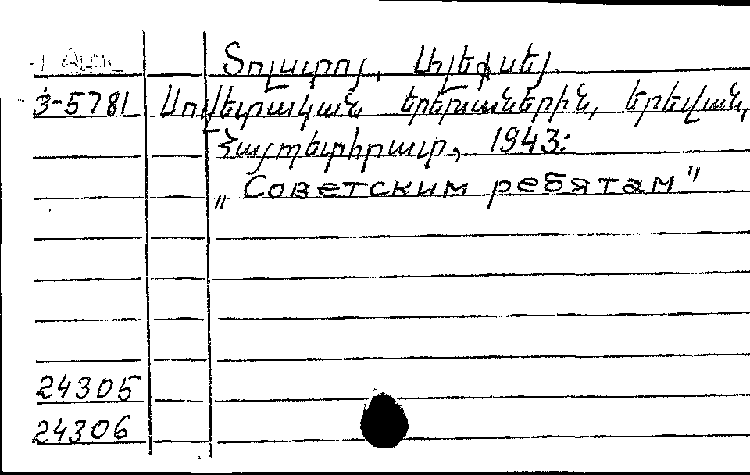 Տոլստոյ, Ալեքսեյ
3-5781 Սովետական երեխաներին, Երեվան,
Հայպետհրատ, 1943:
„Советским ребятам"
24305
24306